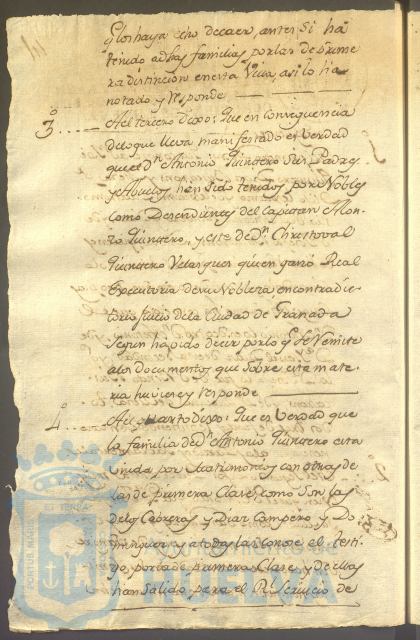 q los haya echo decaer, antes si ha
tenido a dhas familias por las de prime
ra distincion en esta Villa, asi lo ha
notado y responde
3º Al tercero Dixo: Que en Conseguencia
de lo que lleva manifestado es Verdad
que el dn Antonio Quintero sus Padres
y Abuelos, han sido tenidos por Nobles
como Descendientes del Capitan Alon-
zo Quintero, y este de Dn Christoval
Quintero Velazques quien ganó Real
Executoria de su Nobleza en contradic-
torio Juicio de la Ciudad de Granada
segun há oido decir por lo q Se Remite
a los documentos que sobre esta mate-
ria huviere y responde
4º Al quarto dixo: Que es Verdad que
la familia de Dn Antonio Quintero esta
Unida por Matrimonios con otras de
las de primera Clase, como Son las
de los Cabreras, y Diaz Campero, y Do
minguez a todas las conose el testi-
go, por la de primera Clase, y de ellas
han Salido para el Rl Servicio de
PORTUS MARIS ET TERRAE
Ayuntamiento de
HUELVA